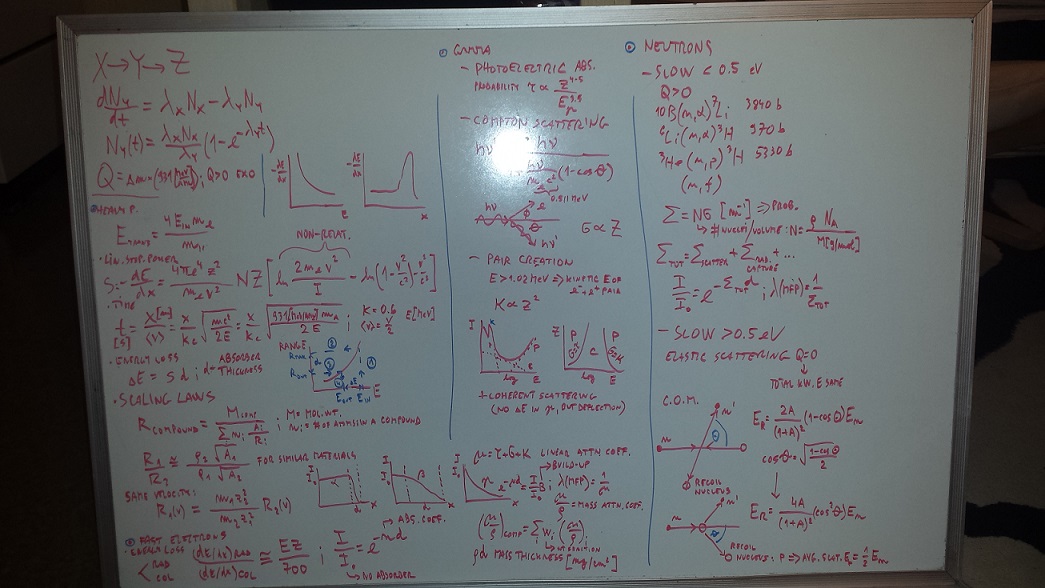 X→Y→Z
dN_Y/dt = λ_X N_X - λ_Y N_Y
N_Y(t) = λ_X N_X/λ_Y (1-e^{-λ_Y t})
Q = Δ (931[MeV/amu]); Q>0 EXO
HEAVY P.
LIN. STOP. POWER
NON-RELAT.
S = -dE/dx = 4πe⁴z²/m_e v² NZ [ln 2m_e v²/I - ln(1-v²/c²) - v²/c²]
-dE/dx
E
-dE/dx
x
TIME
t [s] = X[m]/<v> = x/kc √(mc²/2E) = x/kc √(931[MeV/amu] m_A/2E) ; K=0.6 <v>=v/2 E[MeV]
ENERGY LOSS
ΔE = S d ; d= ABSORBER THICKNESS
RANGE
E
E_OUT E_IN
SCALING LAWS
R_COMPOUND = ; M= MOL.WT. n_i = # OF ATOMS IN A COMPOUND
R_1/R_2 ≅ ρ_2 √A_1/ρ_1 √A_2 FOR SIMILAR MATERIALS
SAME VELOCITY:
R_1(v) = m_1 z_2²/m_2 z_1² R_2(v)
FAST ELECTRONS
ENERGY LOSS
< RAD COL
(dE/dx)RAD/(dE/dx)COL ≅ EZ/700 ; I/I_0 = e^{-nd}
→ ABS. COEF.
NO ABSORBER
GAMMA
- PHOTOELECTRIC ABS.
PROBABILITY τ ∝ Z^{4-5}/E_γ^{3.5}
- COMPTON SCATTERING
hν' = hν
(1-cosθ)
0.511 MeV
hν
e
φ
θ
hν'
σ∝Z
- PAIR CREATION
E>1.02 MeV ⇒ KINETIC E OF e⁻-e⁺ PAIR
K∝Z²
Log E
Log E
+ COHERENT SCATTERING
(NO ΔE IN γ, BUT DEFLECTION)
μ=τ+σ+K LINEAR ATTN COEF.
BUILD-UP
λ(MFP) = 1/μ
μ/ρ = MASS ATTN. COEF.
(μ/ρ)_COMP = Σ_i W_i (μ/ρ)_i
ρd MASS THICKNESS [mg/cm²]
NEUTRONS
- SLOW < 0.5 eV
Q>0
10B(n,α)⁷Li 3840 b
⁶Li(n,α)³H 970 b
³He(n,p)³H 5330 b
(n,f)
Σ=Nσ [m⁻¹] ⇒ PROB.
↳ # NUCLEI/VOLUME : N = ρ N_A/M[g/mol]
Σ_TOT = Σ_SCATTER + Σ_RAD. CAPTURE + ...
I/I_0 = e^{-Σ_TOT d} ; λ(MFP) = 1/Σ_TOT
- SLOW >0.5 eV
ELASTIC SCATTERING Q=0
↓
TOTAL KIN. E SAME
C.O.M.
n
n'
θ
RECOIL NUCLEUS
E_R = 2A/(1+A)² (1-cosΘ)E_n
cosθ = √(1-cosΘ/2)
↓
E_R = 4A/(1+A)² (cos²θ)E_n
n
n'
RECOIL NUCLEUS ; P ⇒ AVG. SCAT. E_R = 1/2 E_n